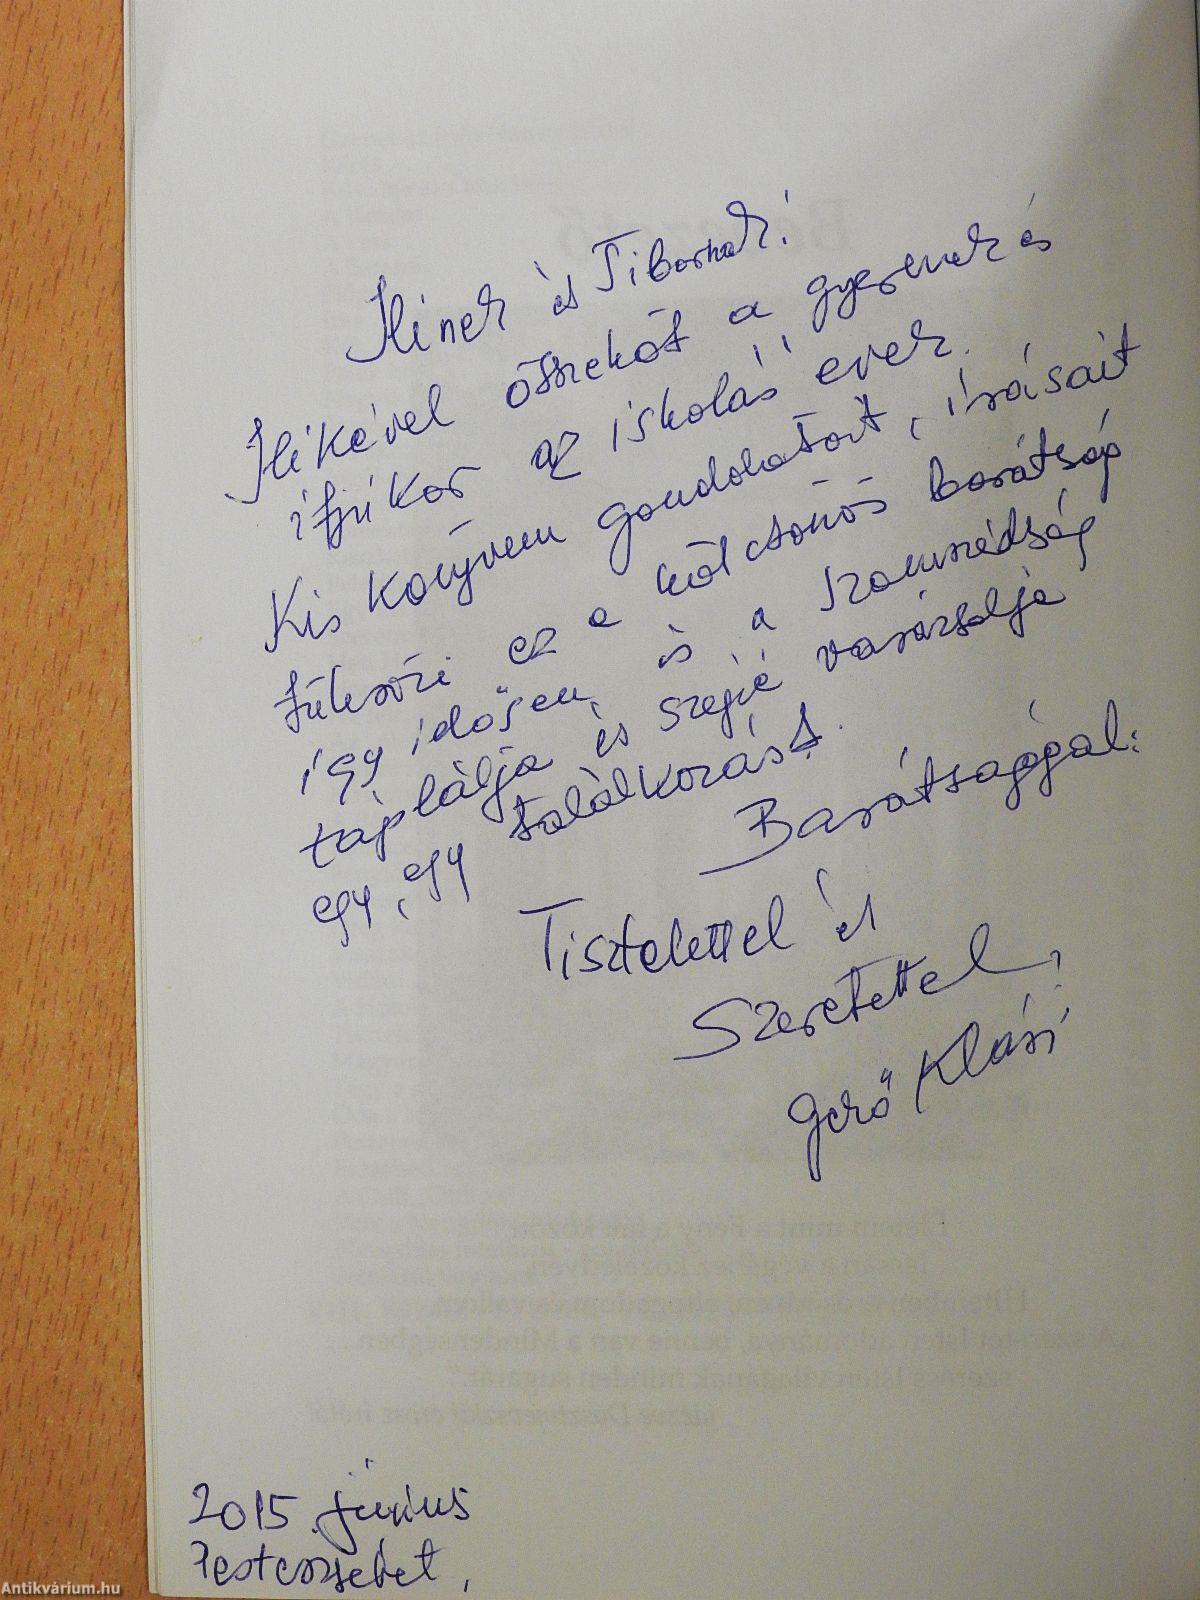 Ilinek és Tibornak!
Ilikével összeköt a gyerek és
ifjúkor az iskolás évek.
Kis könyvem gondolatait, írásait
ez a kölcsönös barátság
így idősen, és a szomszédság
táplálja és széppé varázsolja
egy, egy találkozást.
Barátsággal:
Tisztelettel és
Szeretettel,
Gerő Klári
2015. június
Pesterzsébet,
Antikvárium.hu